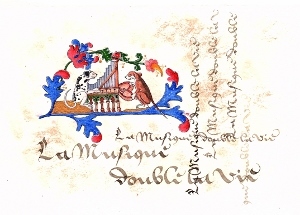 La Musique double la vie
La Musique
double la Vie
La Musique double la vie
La Musique double la vie
La Musique double